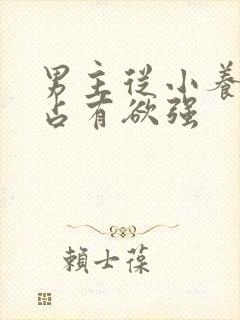 男主从小養
占有欲强
賴士葆